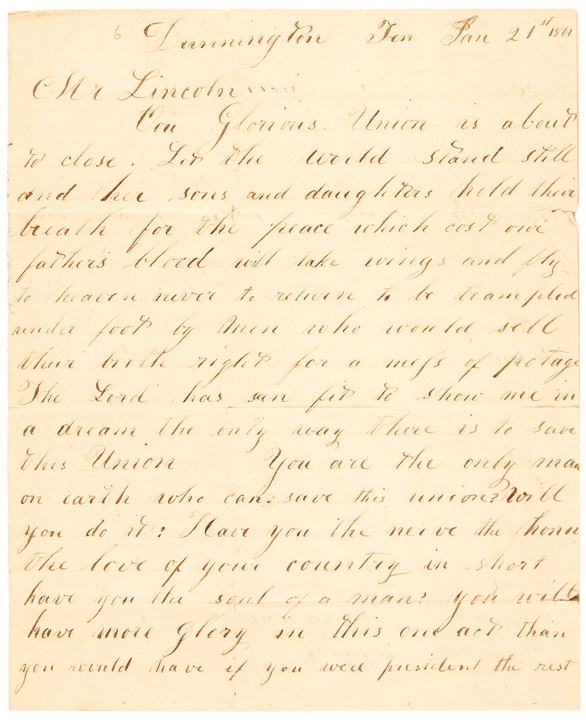 6
Dunnington Ten Jan 21st 1861
Mr Lincoln
Our Glorious Union is about
to close. Let the world stand still
and her sons and daughters hold their
breath for the peace which cost our
father's blood will take wings and fly
to heaven never to return to be trampled
under foot by men who would sell
their birth right for a mess of potage
The Lord has seen fit to show me in
a dream the only way there is to save
this Union You are the only man
on earth who can save this union? Will
you do it? Have you the nerve the honor
the love of your country in short
have you the soul of a man? you will
have more Glory in this one act than
you would have if you were president the rest